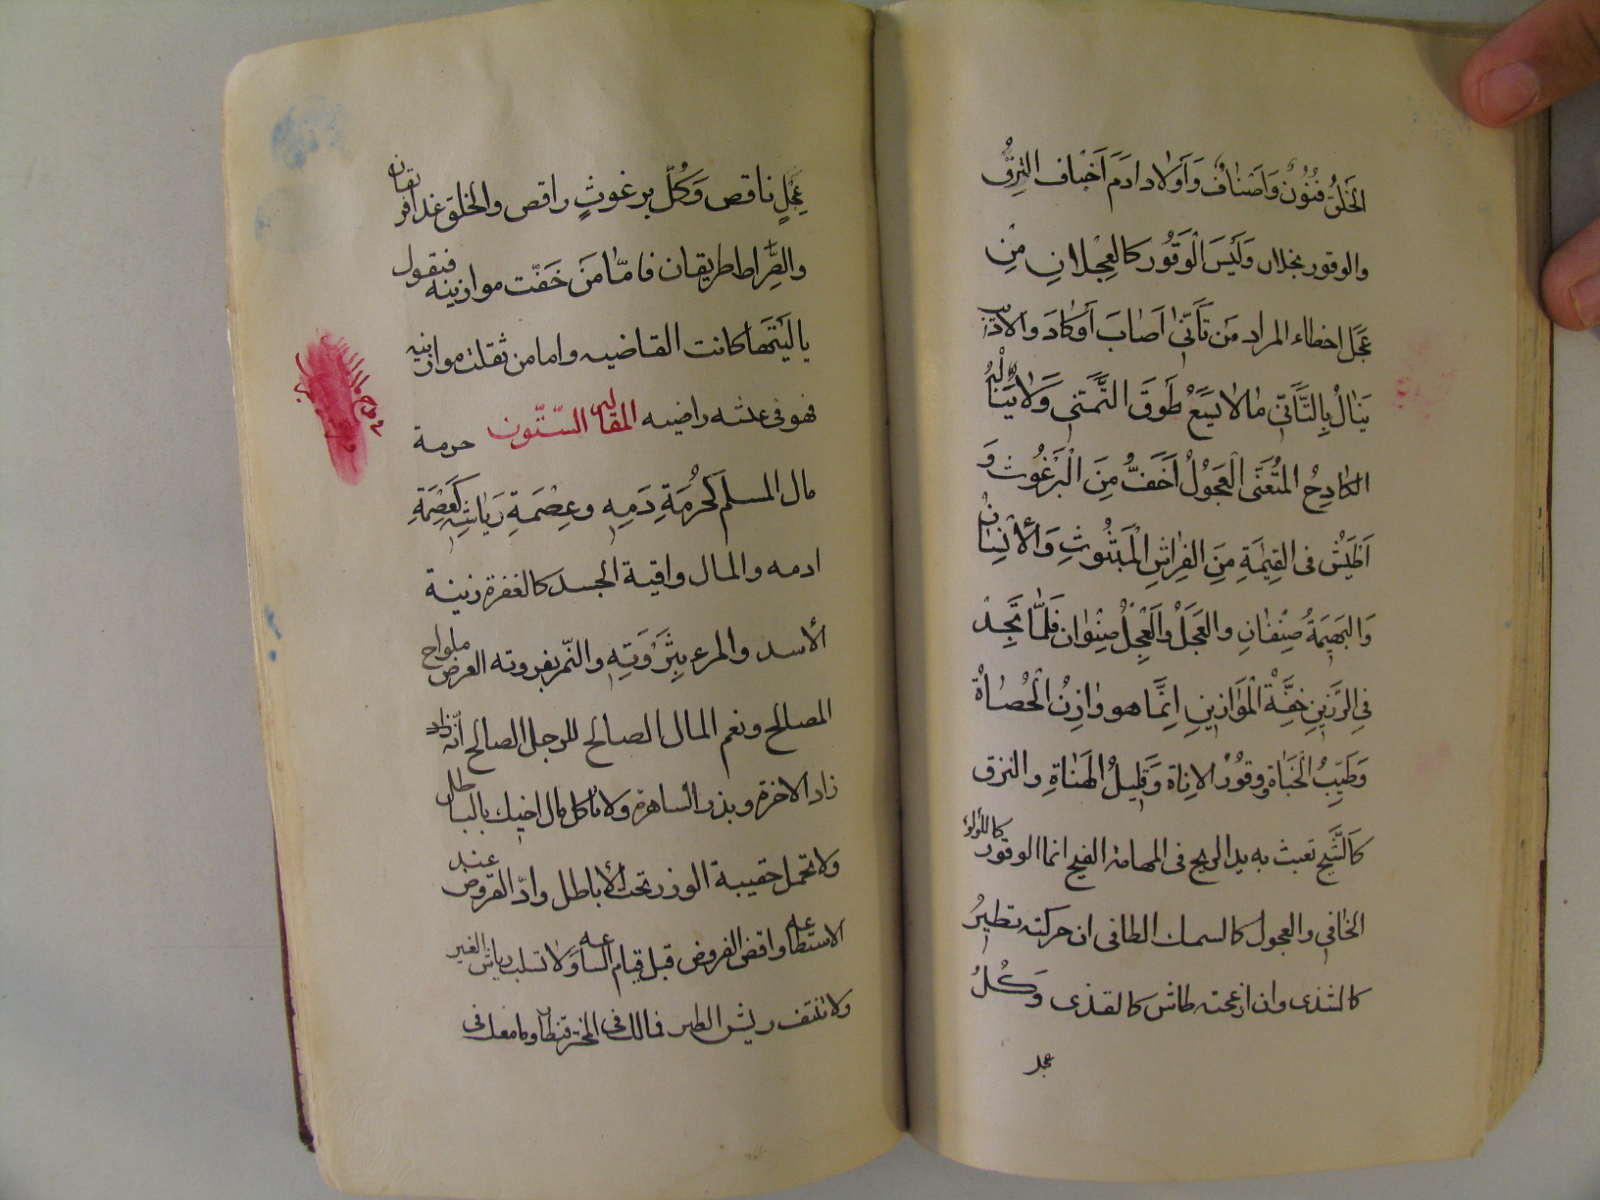 الخَلقُ فُنُونٌ وَاَصْنافٌ وَاَولاد ادَمَ اَخْياف النَّزِقُ
والوقور نجلان وَلَيْسَ الْوَقُور كالعِجْلانِ مَنْ
عَجَل اخطاء المراد مَن تَأَنّى اَصَابَ اَوْكادَ وَالاريب
يَنالُ بِالتَّأنّي مالا يسَعُ طَوقَ التَّمَنّي وَلا يَنالُهُ
الكادِحُ المتُعَنّى الْعَجُولُ اَخَفُّ مِنَ الْبَرْغُوثِ وَ
اَطْيَشُ فى القِيمَةِ مِنَ الفِراشِ الْمَبْثُوثِ وَالأنْسَانُ
وَالبَهيمَةُ صِنْفانِ والعَجَلُ وَالْعِجْلُ صِنْوان قَلَّمَا تَجِدُ
فِي الرَّزينِ خِفَّةَ الْمَوازينِ اِنَّما هو وازِنُ الْحُصاةْ
وَطَيِّبُ الْحَياة وقورُ الاناة وَقَليلُ الهَناةِ والنزق
كَالشّيحِ تعبث به يد الريح فى المهامة الفيح انما الوقور كاللؤلؤ
الخافي والعجول كالسمك الطافى ان حركته تطيرُ
كالشذى وان ازعجته طاش كالقذى وَكُلُّ
عجل
عَجِلٍ ناقص وَكُلّ برغوثٍ راقص والخلق غدا فريقان
والصِّراط طريقان فامّا مَنَ خَفّت موازينه فيقول
ياليَتَهَا كانت القاضيه واما من ثقلت موازينه
فهو فى عيشه راضيه المقاله السّتّون حرمة
مال المسلم كَحُرْمَةِ دَمِهِ وعِصْمَةِ رِياشِهِ كَعِصْمَةِ
ادمه والمال واقية الجسد كالغفرة زينة
الأسد والمرء بِثَرْوَتِهِ والنّمر بفروته العرض ملواح
المصالح ونعم المال الصالح للرجل الصالح انّه زاد
زاد الاخرة وبذر الساهرة ولا تاكل مال اخيك بالباطل
ولا تحمل حقيبة الوزر تحت الأباطل وادّ القروض عند
الاستطاعه واقض الفروض قبل قيام الساعه وَلا تسلب رياش الغير
ولا تنتف ريش الطير فمالك فى